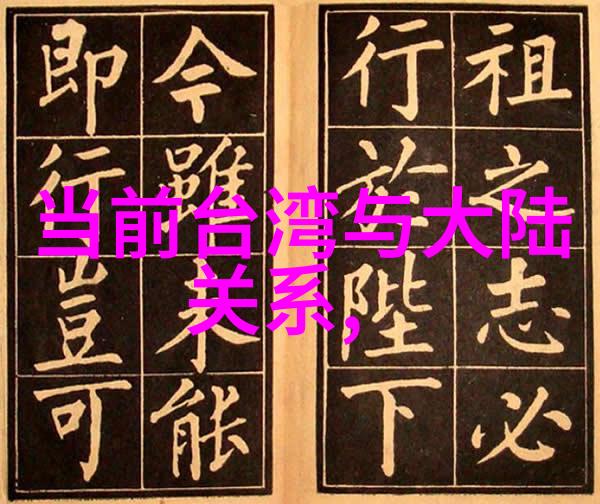 祖之志必
行於陛下
今雖未能
即行豈可
当前台湾与大陆
关系,